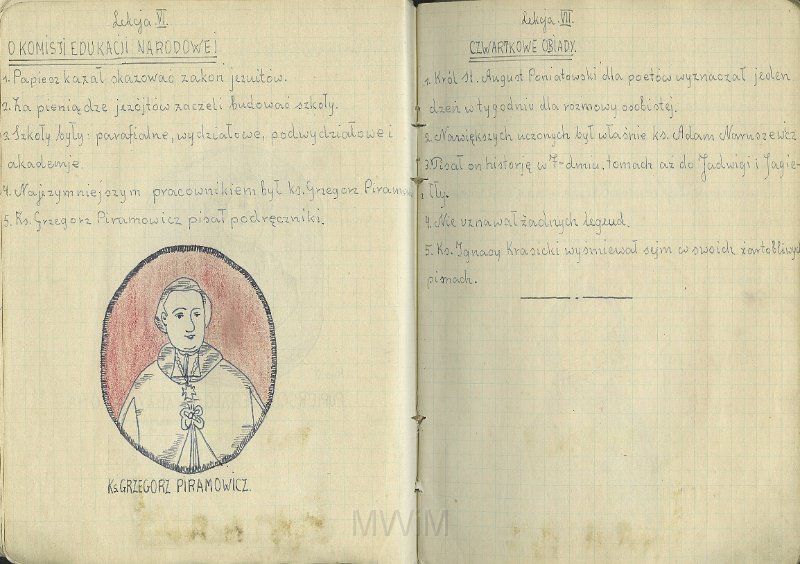 Lekcja VI.
O KOMISJI EDUKACJI NARODOWEJ
1. Papież kazał skazować zakon jezuitów.
2. Za pieniądze jezójtów zaczeli budować szkoły.
3. Szkoły były: parafialne, wydziałowe, podwydziałowe i
akademje.
4. Najczynniejszym pracownikiem był ks. Grzegorz Piramow
5. Ks. Grzegorz Piramowicz pisał podręczniki.
Ks. GRZEGORZ PIRAMOWICZ.
Lekcja. VII.
CZWARTKOWE OBIADY.
1. Król St. August Poniatowski dla poetów wyznaczał jeden
dzeń w tygodniu dla rozmowy osobistej.
2. Nawiększych uczonych był właśnie ks. Adam Naruszewicz
3. Pisał on historję w 7-dmiu. tomach aż do Jadwigi i Jagie-
łły.
4. Nie uznawał żadnych legend.
5. Ks. Ignacy Krasicki wyśmiewał sejm w swoich żartobliwych
pismach.
MWM